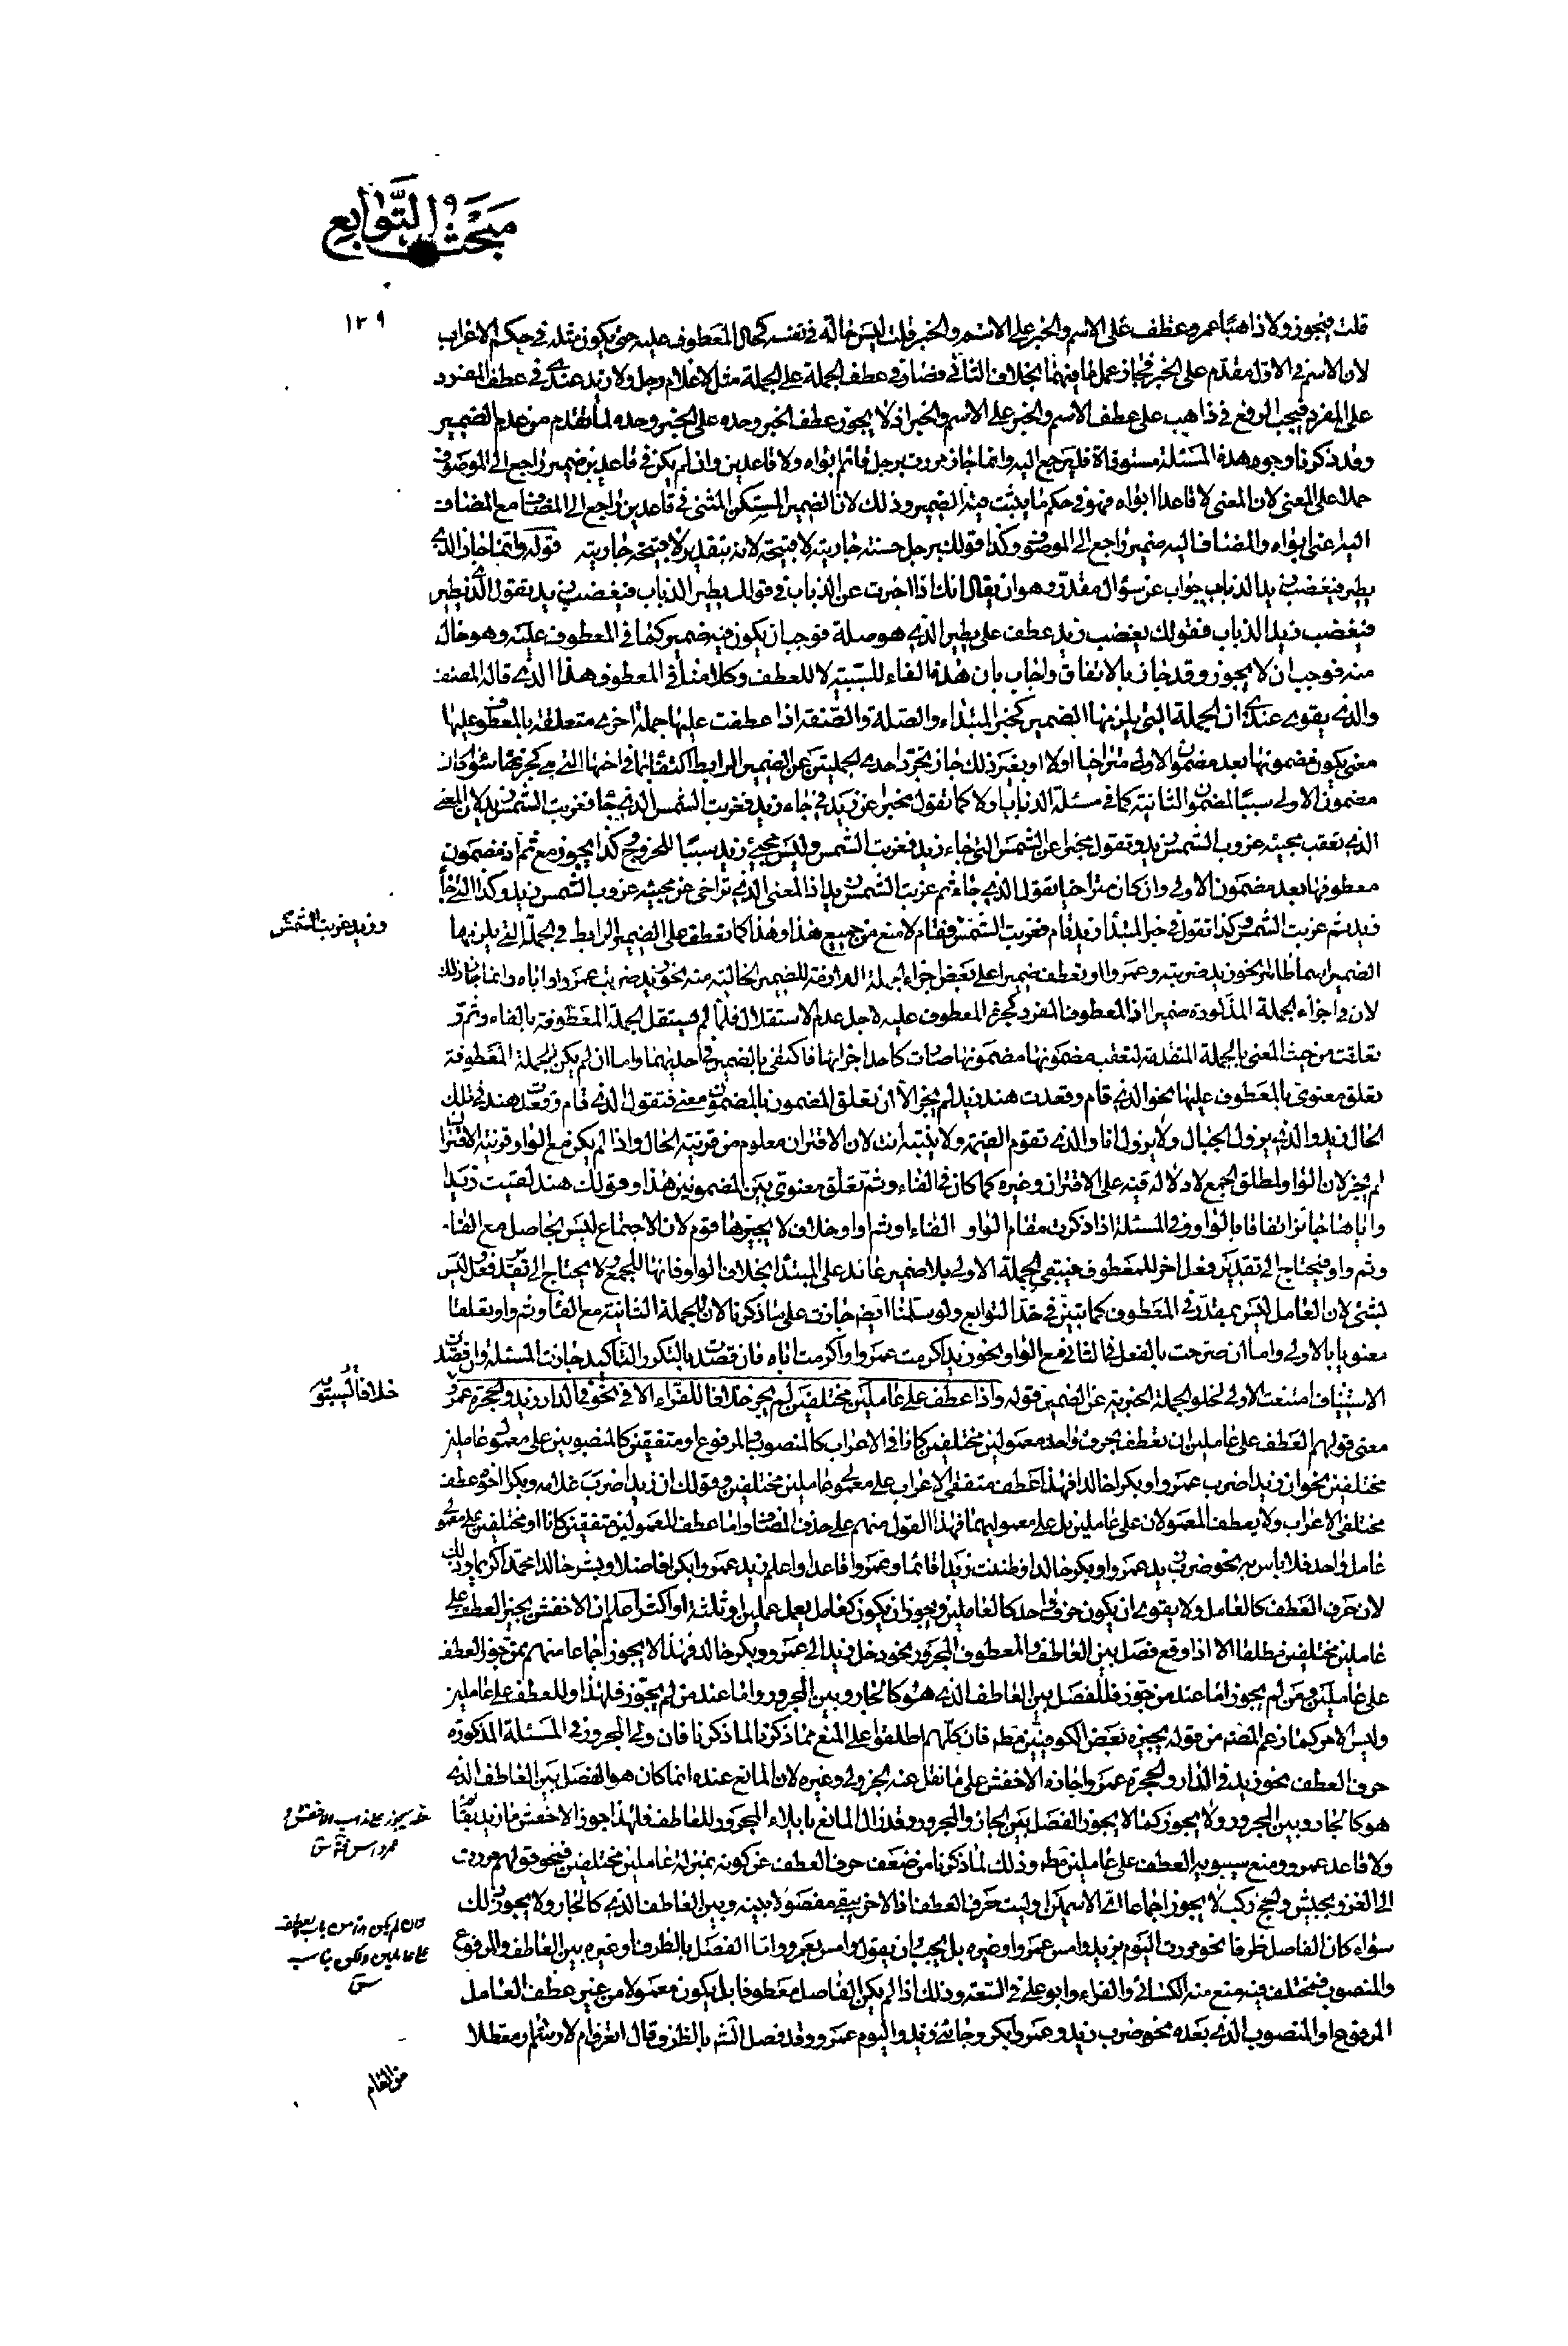 مَبْحَثُ التَّوَابِع
١٣٩
قلت فيجوز ولا ذاهبا عمرو عطف على الاسم والخبر على الاسم والخبر قلت ليس حاله في نفسه كحال المعطوف عليه حتى يكون مثله في حكم الاعراب
لان الاسم في الاول مقدم على الخبر فجاز عمل ما فيهما بخلاف الثاني فصار في عطف الجملة على الجملة مثل لا غلام رجل ولا زيد عندى في عطف المفرد
على المفرد فيجب الرفع في ذاهب على عطف الاسم والخبر على الاسم والخبر اذ لا يجوز عطف الخبر وحده على الخبر وحده لما تقدم من عدم الضمير
وقد ذكرنا وجوه هذه المسئلة مستوفاة فليرجع اليه وانما جاز مررت برجل قائم ابواه ولا قاعدين وان لم يكن في قاعدين ضمير راجع الى الموصوف
حملا على المعنى لان المعنى لا قاعدا ابواه فهو في حكم ما يثبت فيه الضمير وذلك لان الضمير المستكن المثنى في قاعدين راجع الى المضاف مع المضاف
اليه اعنى ابواه والمضاف اليه ضمير راجع الى الموصوف وكذا قولك برجل حسنة جاريته لا قبيحة لانه بتقدير لا قبيحة جاريته قوله وانما جاز الذى
يطير فيغضب زيد الذباب جواب عن سؤال مقدر وهو ان يقال انك اذا اخبرت عن الذباب في قولك يطير الذباب فيغضب زيد تقول الذى يطير
فيغضب زيد الذباب فقولك يغضب زيد عطف على يطير الذى هو صلة فوجب ان يكون فيه ضمير كما في المعطوف عليه وهو خال
منه فوجب ان لا يجوز وقد جاز بالاتفاق واجاب بان هذه الفاء للسببية لا للعطف وكلامنا في المعطوف هذا الذى قاله المصنف
والذى يقوى عندى ان الجملة التى يلزمها الضمير كخبر المبتداء والصلة والصفة اذا عطفت عليها جملة اخرى متعلقة بالمعطوف عليها
معنى يكون مضمونها بعد مضمون الاولى متراخيا اولا او بغير ذلك جاز تجرد احدى الجملتين عن الضمير الرابط اكتفاء بما في اختها التى هى كجزئها سواء كان
مضمون الاولى سببا لمضمون الثانية كما في مسئلة الذباب اولا كما تقول مخبرا عن زيد في جاء زيد فغربت الشمس الذى جاء فغربت الشمس زيد لان المعنى
الذى تعقب مجيئه غروب الشمس زيد وتقول مخبرا عن الشمس التى جاء زيد فغربت الشمس وليس مجئ زيد سببا للغروب وكذا يجوز مع ثم اذ مضمون
معطوفها بعد مضمون الاولى وان كان متراخيا تقول الذى جاء ثم غربت الشمس زيد اذ المعنى الذى تراخى عن مجيئه غروب الشمس زيد وكذا التى جاء
زيد ثم غربت الشمس وكذا تقول في خبر المبتدأ زيد قام فغربت الشمس فقام لا منع من جميع هذا وهذا كما تعطف على الضمير الرابط في الجملة التى يلزمها
وزيد غربت الشمس
الضمير اسما ظاهرا نحو زيد ضربته وعمروا او تعطف ضميرا على بعض اجزاء الجملة الخالية منه نحو زيد ضربت عمروا واياه وانما جاز ذلك
لان في اجزاء الجملة المذكورة ضميرا اذ المعطوف المفرد كجزء المعطوف عليه لاجل عدم الاستقلال فلما لم يستقل الجملة المعطوفة بالفاء وثم و
تعلقت من حيث المعنى بالجملة المتقدمة لتعقب مضمونها مضمونها صارت كاحد اجزائها فاكتفى بالضمير في احديهما واما ان لم يكن للجملة المعطوفة
تعلق معنوى بالمعطوف عليها نحو الذى قام وقعدت هند زيد لم يجز الا ان تعلق المضمون بالمضمون معنى فتقول الذى قام وقعدت هند في تلك
الحال زيد والذى يزول الجبال ولا يزول انا والذى تقوم القيمة ولا ينتبه انت لان الاقتران معلوم من قرينة الحال واذا لم يكن مع الواو قرينة الاقتران
لم يجز لان الواو لمطلق الجمع لا دلالة فيه على الاقتران وغيره كما كان في الفاء وثم تعلق معنوى بين المضمونين هذا وقولك هند لقيت زيدا
واياها جائز اتفاقا بالواو وفي المسئلة اذا ذكرت مقام الواو الفاء او ثم او او خلاف لا يجيزها قوم لان الاجتماع ليس بحاصل مع الفاء
وثم واو فيحتاج الى تقدير فعل اخر للمعطوف فيبقى الجملة الاولى بلا ضمير عائد على المبتدأ بخلاف الواو فانها للجمع لا يحتاج الى تقدير فعل وليس
بشئ لان العامل ليس بمقدر في المعطوف كما تبين في حد التوابع ولو سلمنا ايضا جازت على ما ذكرنا لان للجملة الثانية مع الفاء وثم واو تعلقا
معنويا بالاولى واما ان صرحت بالفعل في الثانى مع الواو نحو زيد اكرمت عمروا واكرمت اباه فان قصدت بالتكرير التأكيد جازت المسئلة وان قصدت
الاستيناف امتنعت الاولى لخلو الجملة الخبرية عن الضمير قوله واذا عطف على عاملين مختلفين لم يجز خلافا للفراء الا في نحو في الدار زيد والحجرة عمرو
خلافا لسيبويه
معنى قولهم العطف على عاملين ان تعطف بحرف واحد معمولين مختلفين كانا في الاعراب كالمنصوب والمرفوع او متفقين كالمنصوبين على معمولى عاملين
مختلفين نحو ان زيدا ضرب عمروا وبكرا خالدا فهذا عطف متفقى الاعراب على معمولى عاملين مختلفين وقولك ان زيدا ضرب غلامه وبكرا اخوه عطف
مختلفى الاعراب ولا يعطف المعمولان على عاملين بل على معموليهما فهذا القول منهم على حذف المضاف واما عطف المعمولين متفقين كانا او مختلفين على معمولى
عامل واحد فلا باس به نحو ضرب زيد عمروا وبكر خالدا وظننت زيدا قائما وعمروا قاعدا واعلم زيد عمروا بكرا فاضلا وبشر خالدا محمدا كريما وذلك
لان حرف العطف كالعامل ولا يقوى ان يكون حرف واحد كالعاملين ويجوز ان يكون كعامل يعمل عملين او ثلثة او اكثر اعلم ان الاخفش يجيز العطف على
عاملين مختلفين مطلقا الا اذا وقع فصل بين العاطف والمعطوف المجرور نحو دخل زيد الى عمرو وبكر خالد فهذا لا يجوز اجماعا منهم ممن جوز العطف
على عاملين وممن لم يجوز اما عند من جوز فللفصل بين العاطف الذى هو كالجار وبين المجرور واما عند من لم يجوز فلهذا وللعطف على عاملين
وليس الامر كما زعم المصنف من قوله يجيزه بعض الكوفيين مطلقا فان كلهم اطلقوا على المنع مما ذكرنا لما ذكرنا فان ولى المجرور في المسئلة المذكورة
حرف العطف نحو زيد في الدار والحجرة عمرو اجازه الاخفش على ما نقل عنه الجزولى وغيره لان المانع عنده انما كان هو الفصل بين العاطف الذى
هو كالجار وبين المجرور ولا يجوز كما لا يجوز الفصل بين الجار والمجرور وقد زال المانع بايلاء المجرور للعاطف فلهذا جوز الاخفش ما زيد بقائم
ولا قاعد عمرو ومنع سيبويه العطف على عاملين مطلقا وذلك لما ذكرنا من ضعف حرف العطف عن كونه بمنزلة عاملين مختلفين فنحو قولهم مررت
الى الغزو بجيش والحج ركب لا يجوز اجماعا اى الاسمين وليت حرف العطف اذ الاخر يبقى مفصولا بينه وبين العاطف الذى كالجار ولا يجوز ذلك
سواء كان الفاصل ظرفا نحو مررت اليوم بزيد وامس عمرو او غيره بل يجب ان يقول وامس بعمرو واما الفصل بالظرف او غيره بين العاطف والمرفوع
والمنصوب فمختلف فيه منع منه الكسائى والفراء وابو على في السعة وذلك اذا لم يكن الفاصل معطوفا بل يكون معمولا من غير عطف العامل
المرفوع او المنصوب الذى بعده نحو ضرب زيد وعمروا بكر وجائنى زيد واليوم عمرو وقد فصل الشاعر بالظرف وقال
من القام